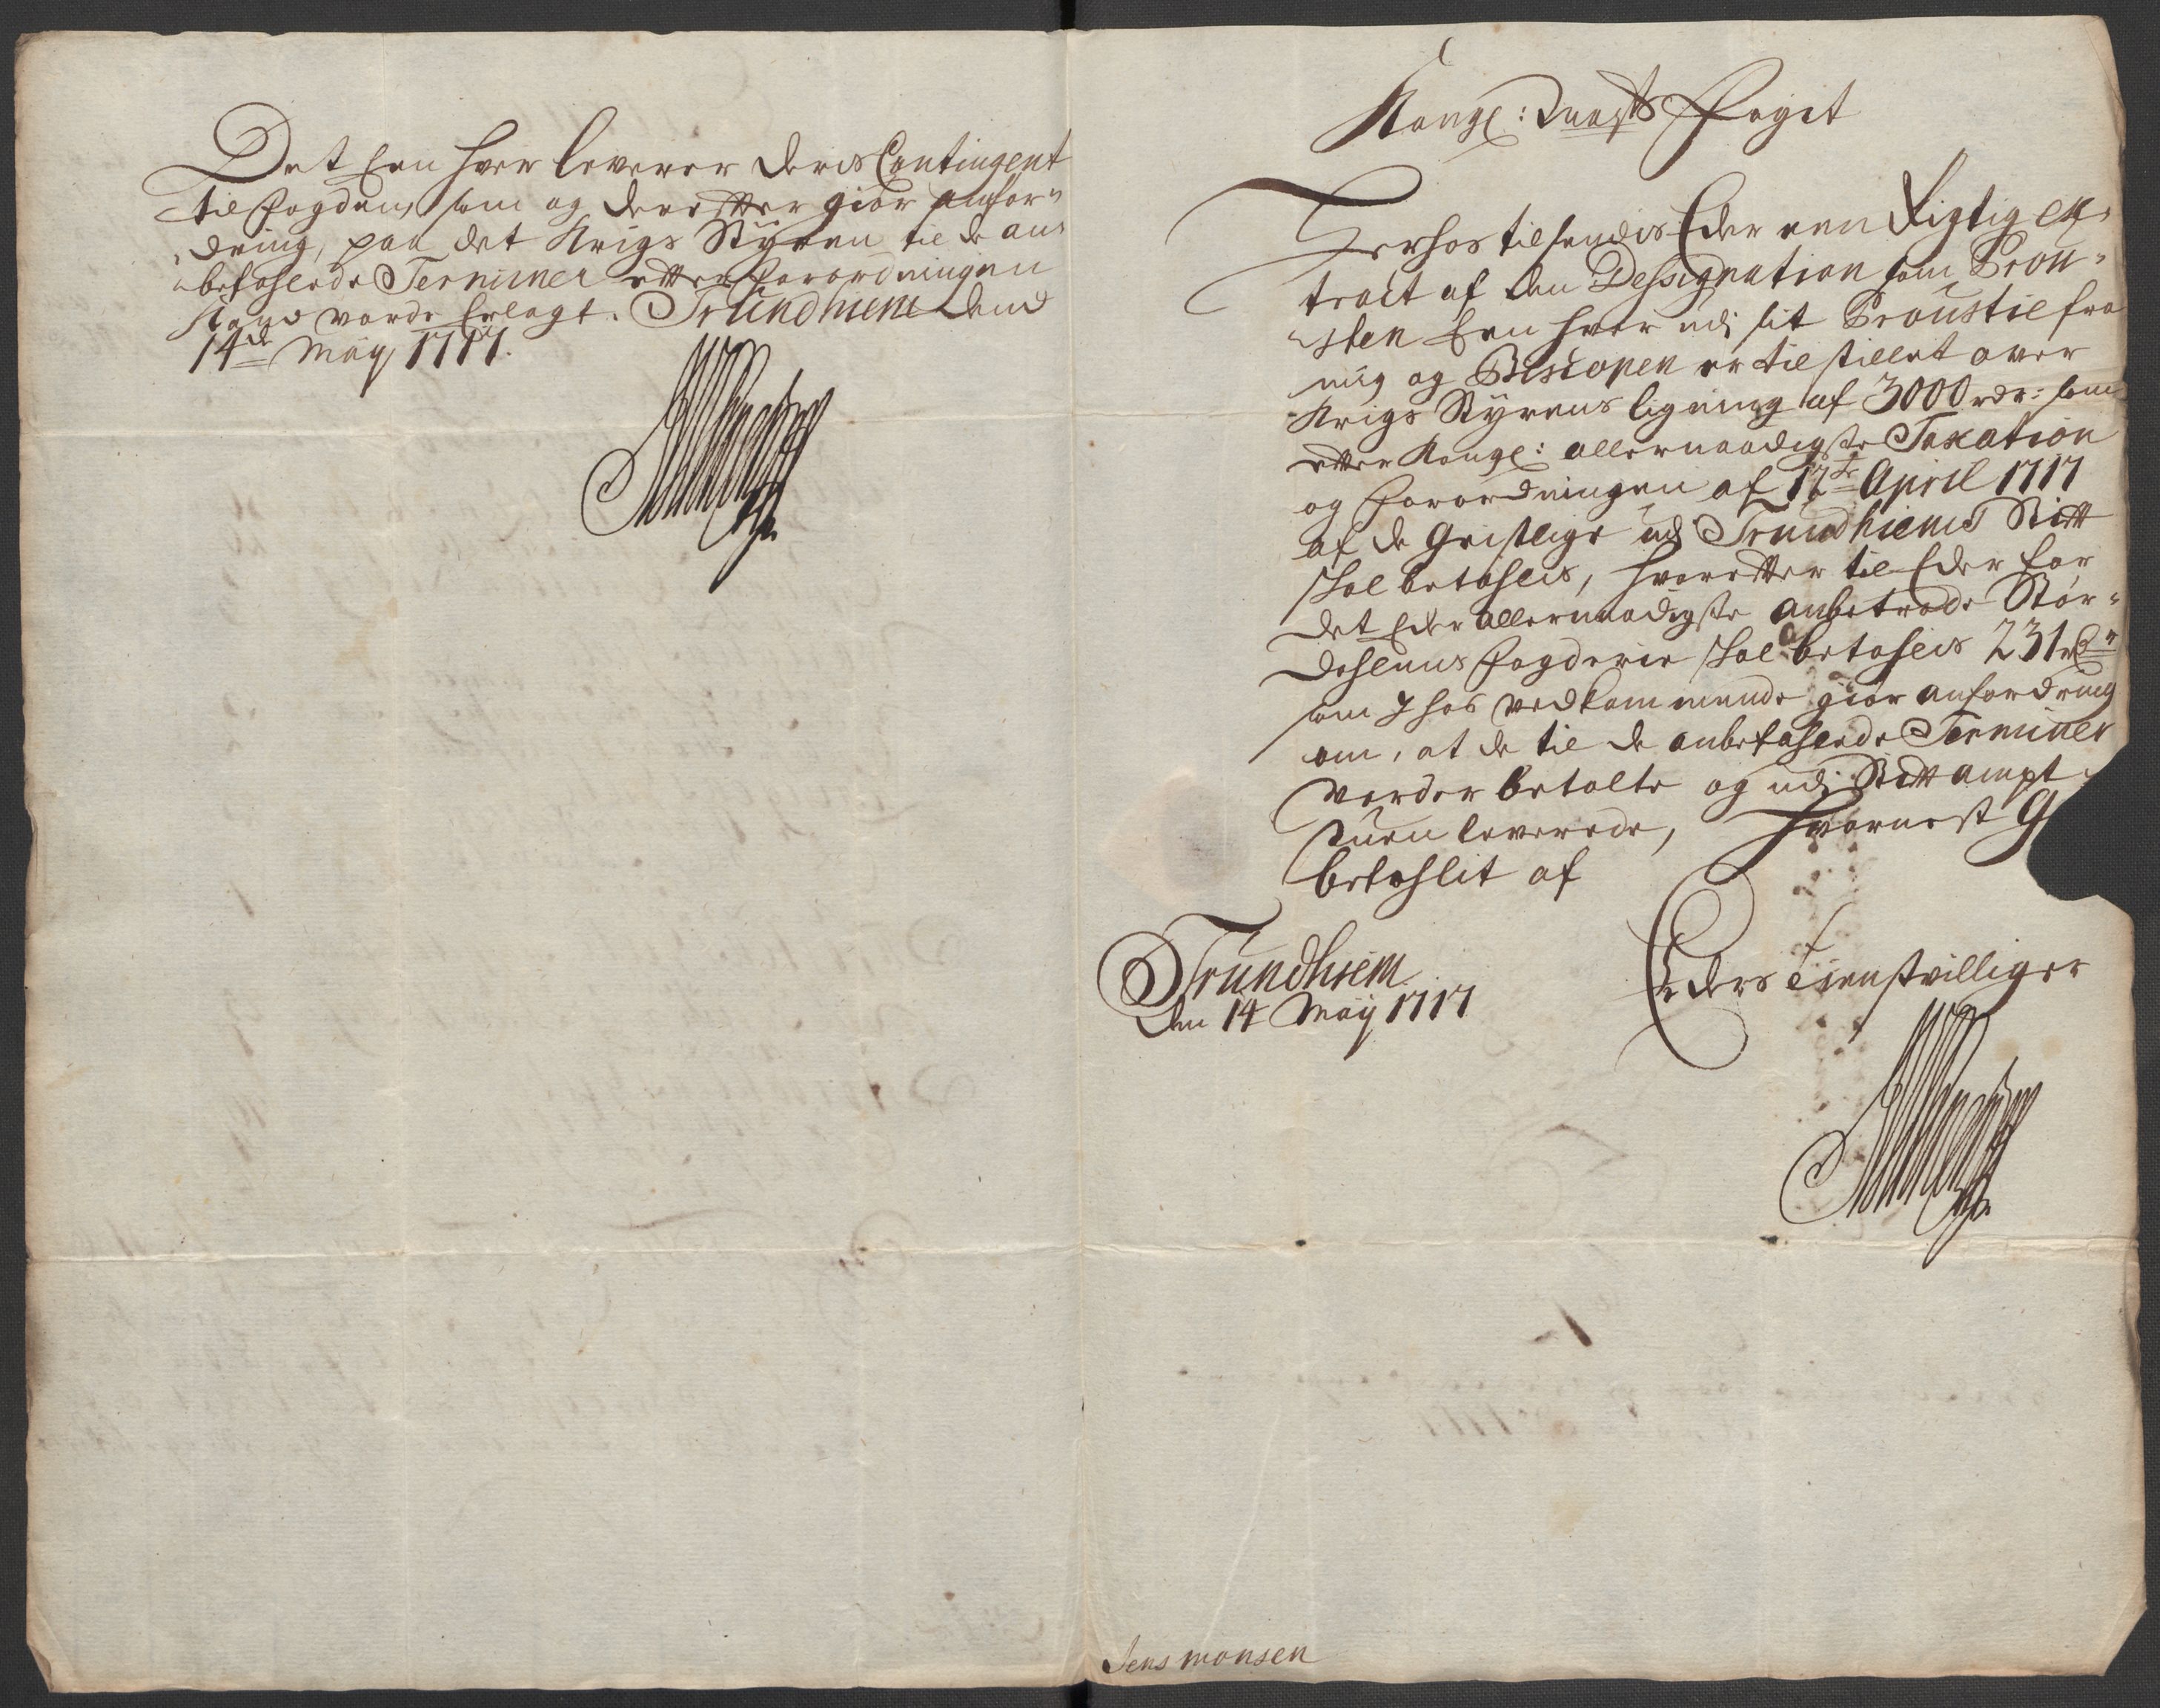 Det Een hver leverer deris Contingent
til Fogden, som og derefter giør anfor-
dring, paa det Krigs Styren til de an-
befahlede Terminer efter Forordningen
Kand vorde Erlagt. Trundhiem dend
14de Maÿ 1717.
Kongl: Maÿsts Fogit
Herhos tilsendis Eder een Rigtig ex-
tract af den Dessignation som Prou-
sten Een hver udj sit Proustie fra
mig og Biscopen er tilstillet over
Krigs Styrens ligning af 3000 rdr: som
efter Kongl: allernaadigste Taxation
og Forordningen af 17de April 1717
af de Geistlige udj Trundhiems Stift
skal betahlis, hvorefter til Eder for
det Eder allernaadigste anbetroede Stør-
dahlens Fogderie skal betahles 231 rdr
som I hos vedkommende giør anfordring
om, at de til de anbefahlede Terminer
vorder betalte og udj Stiftampt-
stuen leverede, hvornest G
befahlit af
Trundhiem
den 14 Maÿ 1717
Eders tienstvilliger
Jens monsen